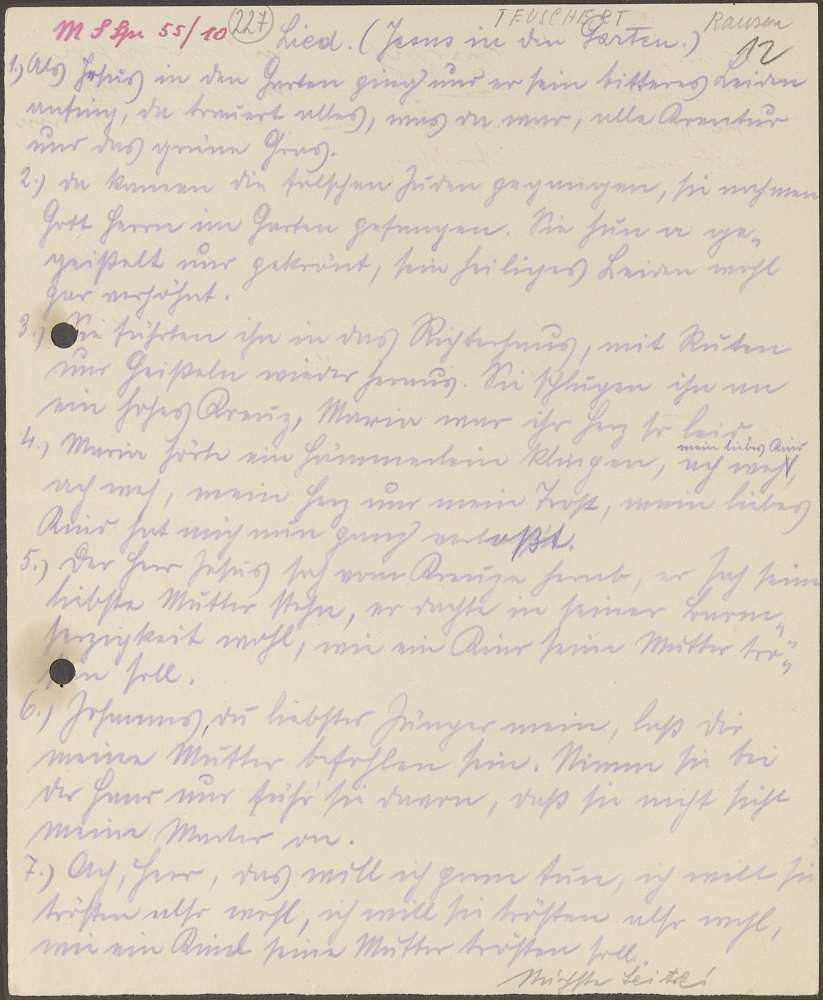 M S Spr 55/10 (227) TEUSCHERT Rausen
Lied. (Jesus in den Garten.) 12
1.) Als Jesus in den Garten ging und er sein bitteres Leiden
anfing, da trauert alles, was da war, alle Kreatur
und das grüne Gras.
2.) da kamen die falschen Juden gegangen, sie nahmen
Gott Herrn im Garten gefangen. Sie hun a ge=
geißelt und gekrönt, sein heiliges Leiden wohl
gar verhöhnt.
3.) Sie führten ihn in das Richterhaus, mit Ruten
und Geißeln wieder heraus. Sie schlugen ihn an
ein hohes Kreuz, Maria war ihr Herz so leid.
4.) Maria hörte ein Hämmerlein klingen, ach weh,
mein liebes Kind
ach weh, mein Herz und mein Trost, mein liebes
Kind hat mich nun ganz verloßt.
5.) Der Herr Jesus sah vom Kreuze herab, er sah seine
liebste Mutter stehn, er dachte in seiner Barm=
herzigkeit wohl, wie ein Kind seine Mutter trö=
sten soll.
6.) Johannes, du liebster Jünger mein, laß dir
meine Mutter befohlen sein. Nimm sie bei
der Hand und führ sie davon, daß sie nicht sieht
meine Marter an.
7.) Ach, Herr, das will ich gern tun, ich will sie
trösten also wohl, ich will sie trösten also wohl,
wie ein Kind seine Mutter trösten soll.
Nächste Seite!